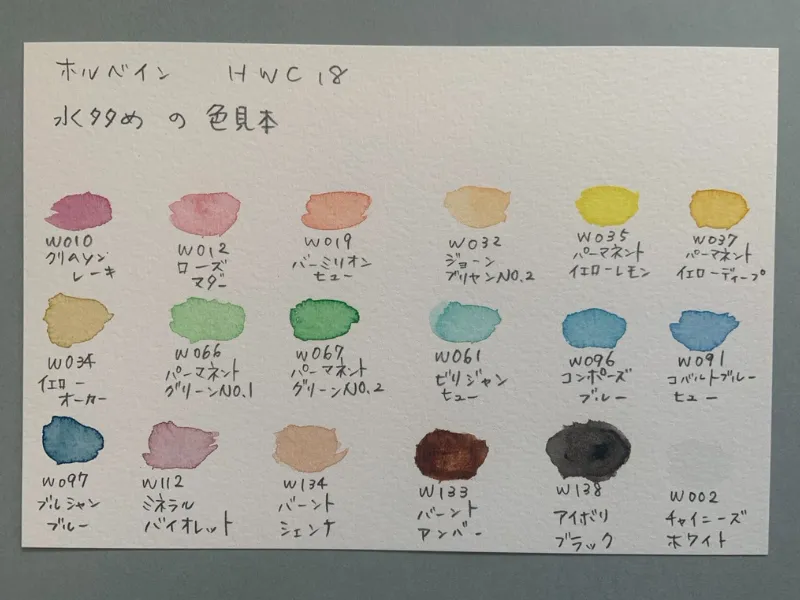 ホルベイン HWC18
水多め の 色見本
W010
クリムソン
レーキ
W012
ローズ
マダー
W019
バーミリオン
ヒュー
W032
ジョーン
ブリヤンNO.2
W035
パーマネント
イエローレモン
W037
パーマネント
イエローディープ
W034
イエロー
オーカー
W066
パーマネント
グリーンNO.1
W067
パーマネント
グリーンNO.2
W061
ビリジャン
ヒュー
W096
コンポーズ
ブルー
W091
コバルトブルー
ヒュー
W097
プルシャン
ブルー
W112
ミネラル
バイオレット
W134
バーント
シェンナ
W133
バーント
アンバー
W138
アイボリ
ブラック
W002
チャイニーズ
ホワイト